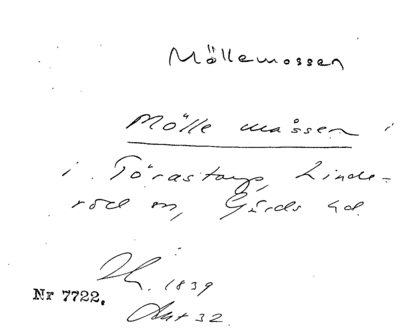 Möllemossen
Mölle måssen i
i Törastorp, Linde=
röd sn, Gärds hd.
1839
Nr 7722.
Akt 32